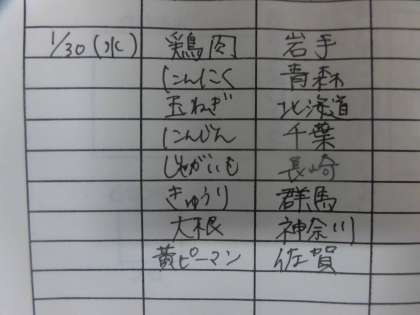 1/30(水) 鶏肉 岩手
にんにく 青森
玉ねぎ 北海道
にんじん 千葉
じゃがいも 長崎
きゅうり 群馬
大根 神奈川
黄ピーマン 佐賀